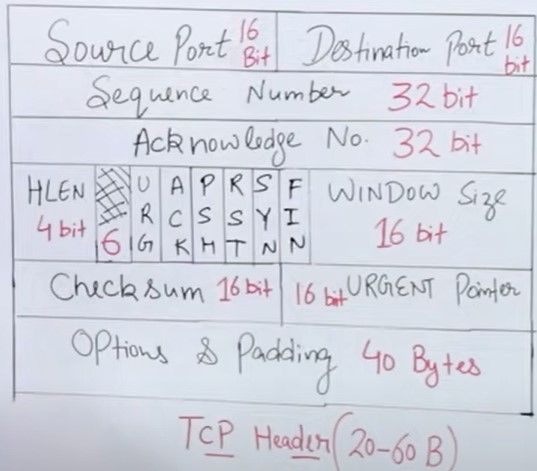 Source Port 16 Bit Destination Port 16 bit
Sequence Number 32 bit
Acknowledge No. 32 bit
HLEN 4 bit 6 URG ACK PSH RST SYN FIN WINDOW Size 16 bit
Checksum 16 bit 16 bit URGENT Pointer
Options & Padding 40 Bytes
TCP Header (20-60 B)